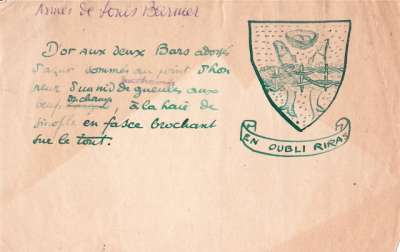 Armes de Louis Bernier
D'or aux deux Bars adossés
d'azur sommés au point d'hon
neur d'un nid de gueules aux
oeufs , à la haie de
sinople en fasce brochant
sur le tout.
EN OUBLI RIRAS